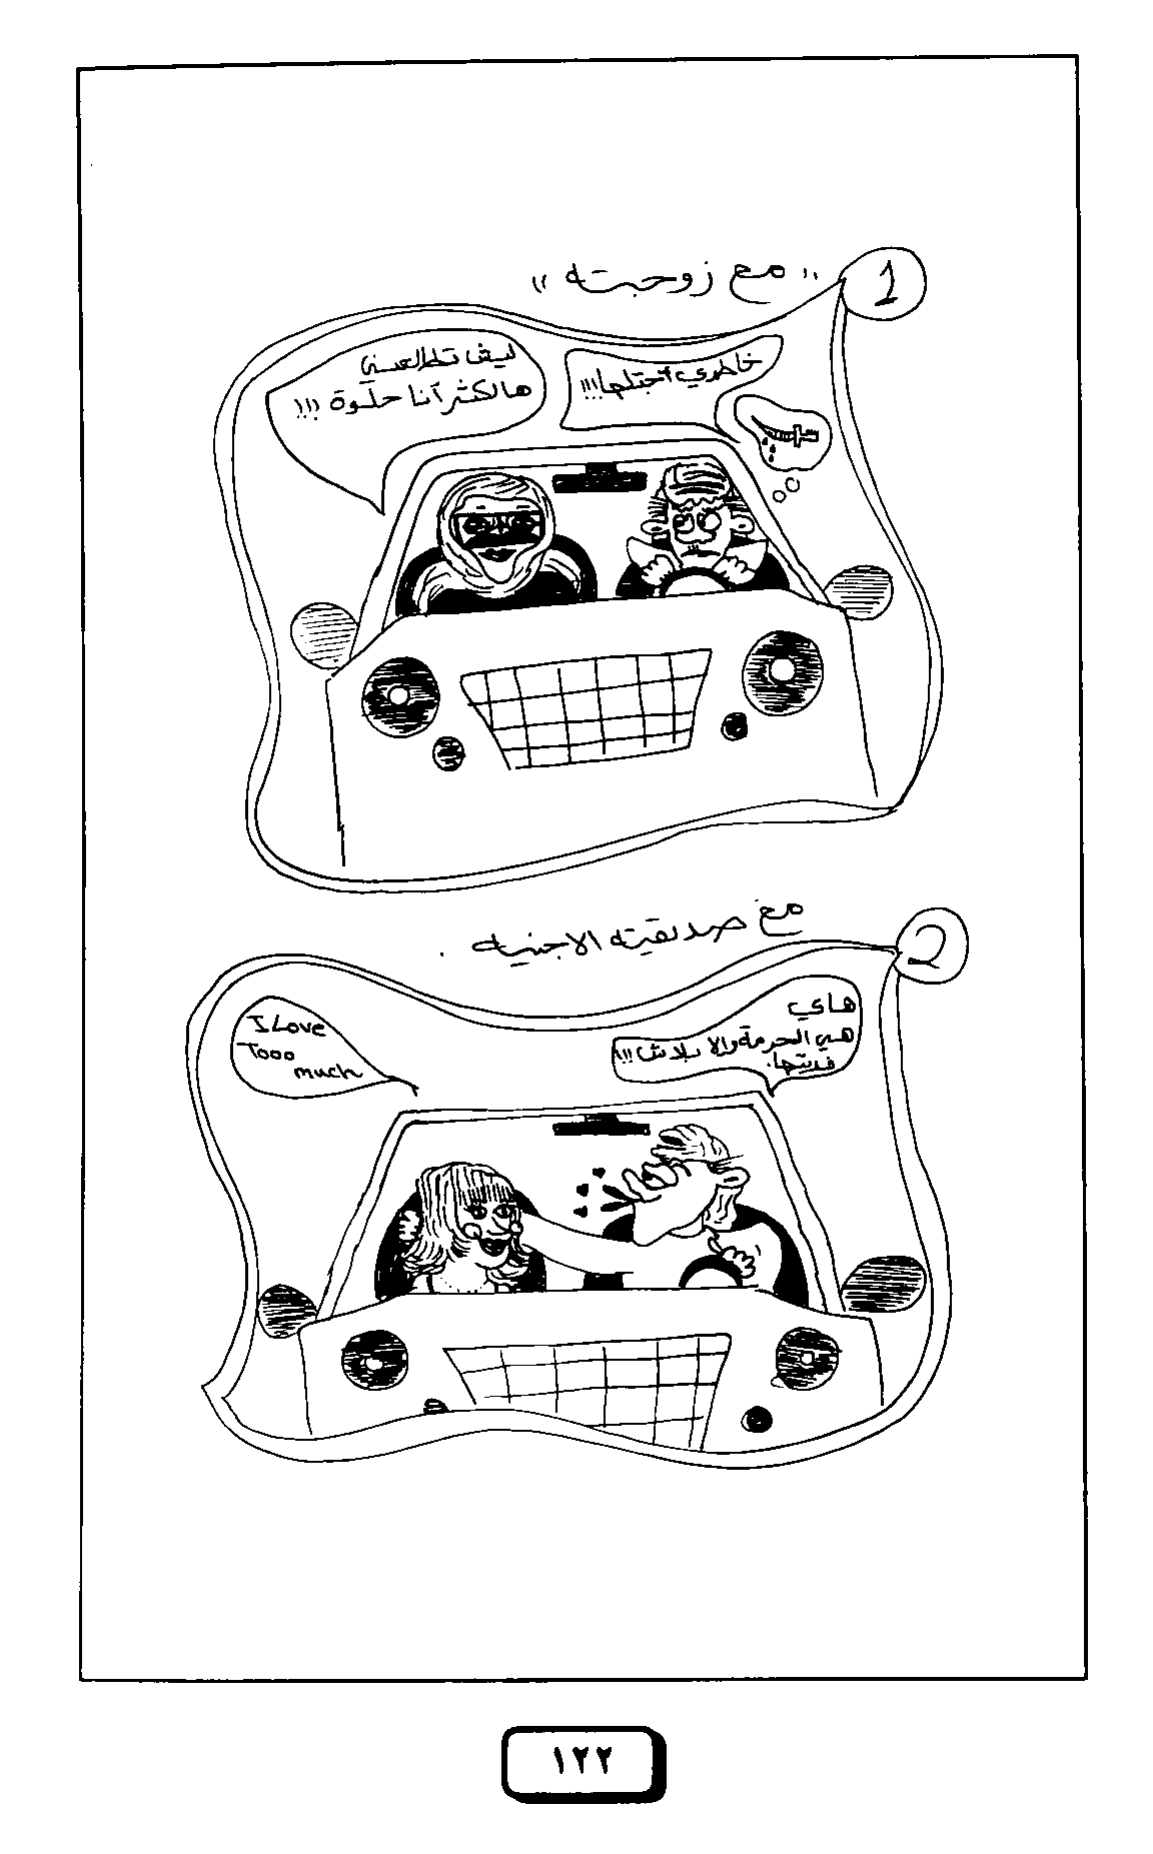 1
"مع زوجته"
خاطري أجتلها!!!
ليش تطالعني
هالكثر آنا حلوة !!!
2
مع صديقته الاجنبيه .
هاي
هي الحرمة والا بلاش !!!
فديتها.
I Love
Tooo
much
١٢٢